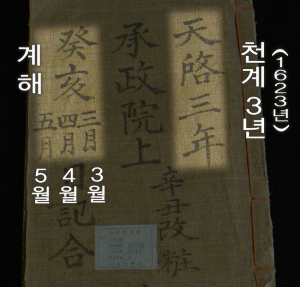 (1623년)
천계 3년
天啓三年
辛丑改粧
承政院上
癸亥
三月
四月
五月
記合
계해
3월
4월
5월